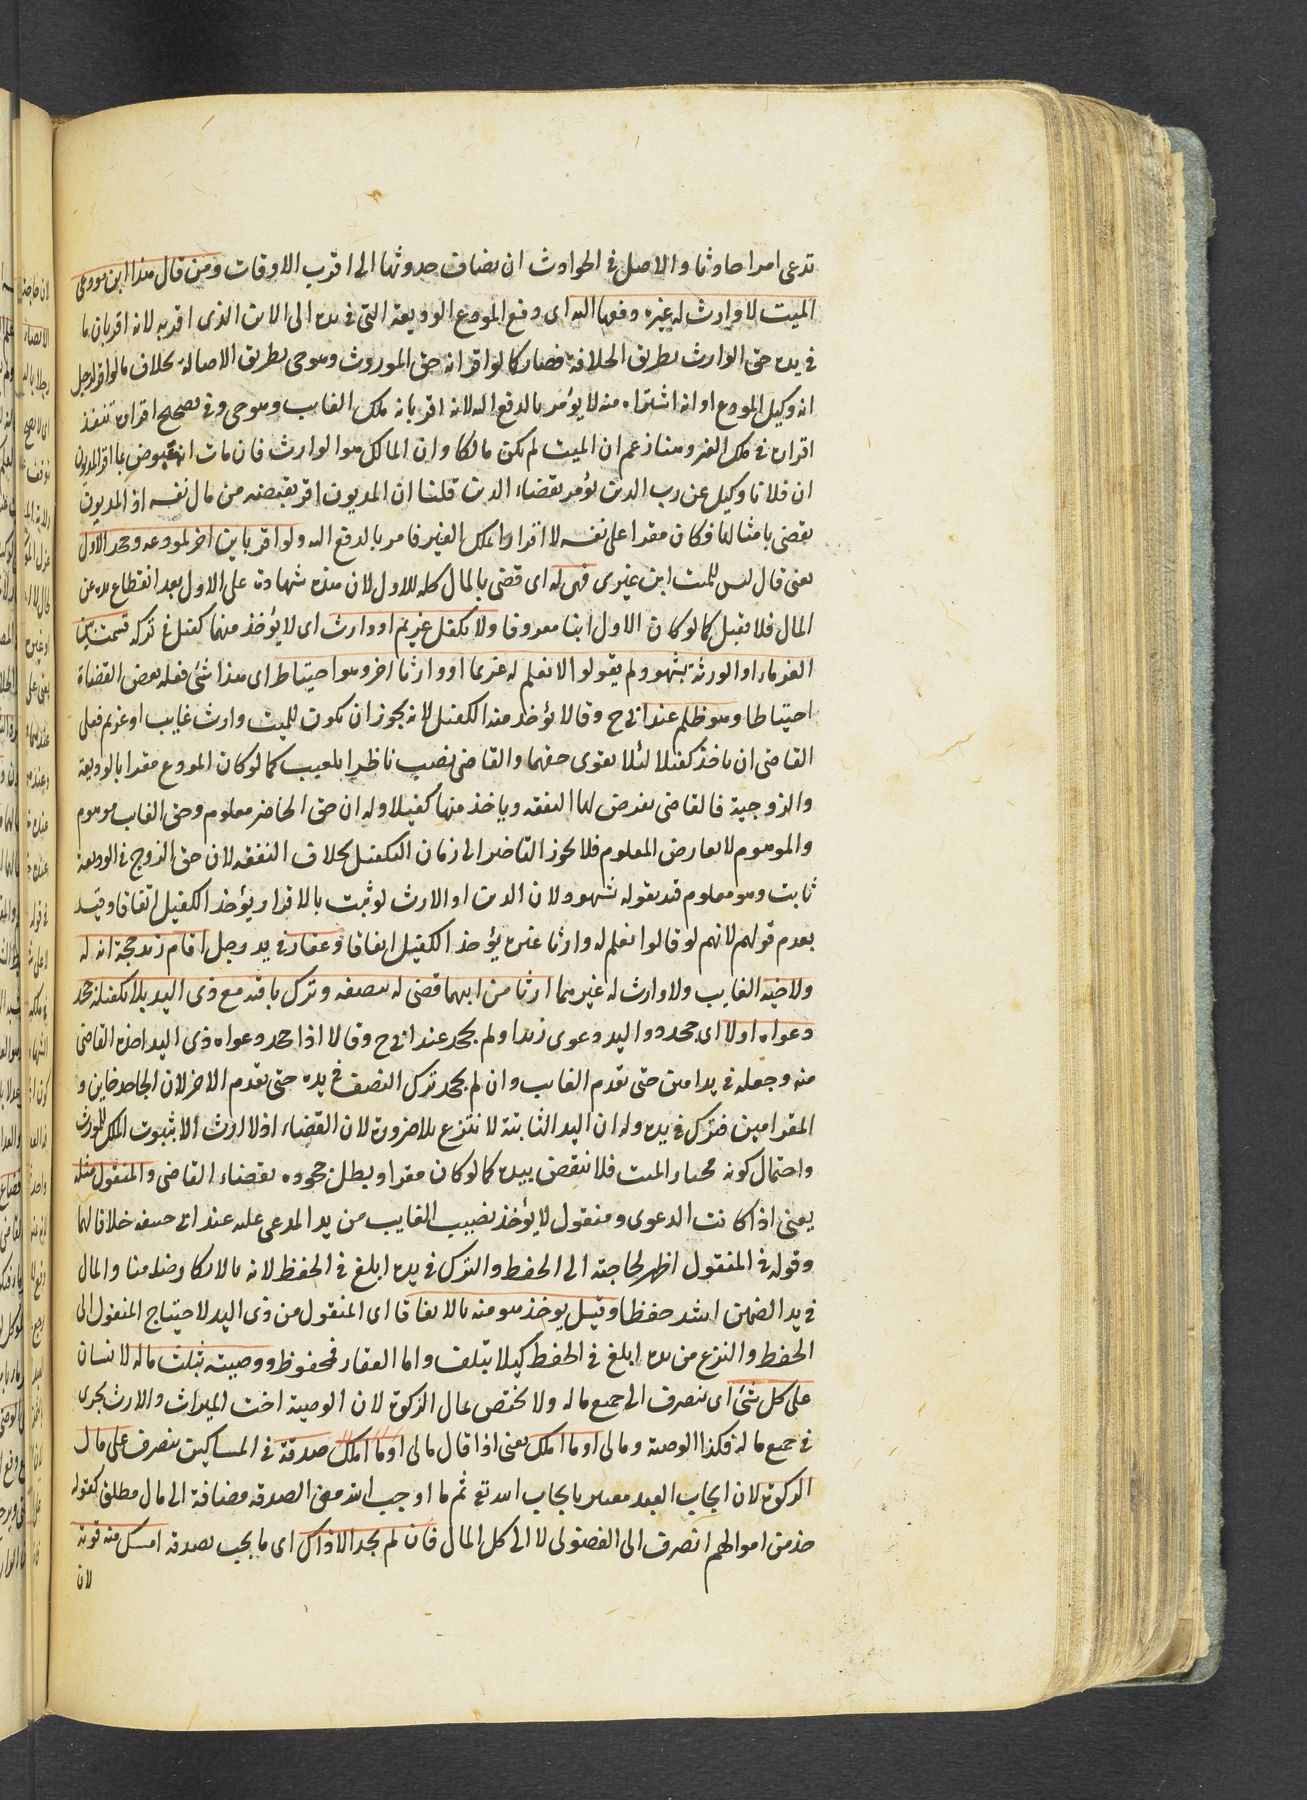 تدعى امرا حادثا والاصل فى الحوادث ان يضاف حدوثها الى اقرب الاوقات ومن قال هذا ابن مودعى
الميت لا وارث له غيره دفعها اليه اى دفع المودع الوديعة التى فى يده الى الابن الذى اقر به لانه اقر بان ما
فى يده حق الوارث بطريق الخلافة فصار كما لو اقر انه حق الموروث وهو حى بطريق الاصالة بخلاف ما لو اقر لرجل
انه وكيل المودع او انه اشتراه منه لا يؤمر بالدفع اليه لانه اقر بانه ملك الغايب وهو حى وفى تصحيح اقراره تنفيذ
اقراره فى ملك الغير وهنا زعم ان الميت لم يكن مالكا وان المالك هو الوارث فان مات اقر المديون
ان فلانا وكيل عن رب الدين يؤمر بقضاء الدين قلنا ان المديون اقر بقبضه من مال نفسه اذ المديون
يقضى بامثالها فكان مقرا على نفسه لا اقرارا بملك الغير فامر بالدفع اليه ولو اقر بابن اخر لمودعه وجحد الاول
يعنى قال ليس للميت ابن غيرى فهى له اى قضى بالمال كله للاول لان هذه شهادة على الاول بعد انقطاع يده عن
المال فلا تقبل كما لو كان الاول ابنا معروفا ولا يكفل غريم او وارث اى لا يؤخذ منهما كفيل فى تركة قسمت بين
الغرماء او الورثة بشهود ولم يقولوا لا نعلم له غريما او وارثا اخر وهو احتياط اى هذا شئ فعله بعض القضاة
احتياطا وهو ظلم عند ابى ح وقالا يؤخذ منه الكفيل لانه يجوز ان يكون للميت وارث غايب او غريم فعلى
القاضى ان ياخذ كفيلا لئلا يتوى حقهما والقاضى نصب ناظرا للغيب كما لو كان المودع مقرا بالوديعة
والزوجية فالقاضى يفرض لها النفقة وياخذ منها كفيلا وله ان حق الحاضر معلوم وحق الغايب موهوم
والموهوم لا يعارض المعلوم فلا يجوز التاخير الى زمان التكفيل بخلاف النفقة لان حق الزوج فى الوديعة
ثابت وهو معلوم قيد بقوله شهود لان الدين او الارث لو ثبت بالاقرار يؤخذ الكفيل اتفاقا وقيد
بعدم قولهم لانهم لو قالوا نعلم له وارثا غيره يؤخذ الكفيل اتفاقا وعقار فى يد رجل اقام زيد حجة انه له
ولاخيه الغايب ولا وارث له غيرهما ارثا من ابيهما قضى له بنصفه وترك باقيه مع ذى اليد بلا تكفيله جحد
دعواه اولا اى جحد ذو اليد دعوى زيد او لم يجحد عند ابى ح وقالا اذا جحد دعواه ذى اليد اخذه القاضى
منه وجعله فى يد امين حتى يقدم الغايب وان لم يجحد ترك النصف فى يده حتى يقدم الاخر لان الجاحد خاين و
المقر امين فترك فى يده وله ان اليد الثابتة لا تنتزع بلا ضرورة لان القضاء اذ لا ارث الا بثبوت الملك للمورث
واحتمال كونه مختار الميت فلا تنقض بيده كما لو كان مقرا وبطل جحوده بقضاء القاضى والمنقول مثله
يعنى اذا كانت الدعوى ومنقول لا يؤخذ نصيب الغايب من يد المدعى عليه عند ابى حنيفة خلافا لهما
وقوله فى المنقول اظهر لحاجته الى الحفظ والترك فى يده ابلغ فى الحفظ لانه بالانكار صار ضامنا والمال
فى يد الضمين اشد حفظا وقيل يوخذ هو منه بالاتفاق اى المنقول من ذى اليد لاحتياج المنقول الى
الحفظ والنزع من يده ابلغ فى الحفظ كيلا يتلف واما العقار فمحفوظ ووصيته بثلث ماله لانسان
على كل شئ اى ينصرف الى جميع ماله ولا يختص بمال الزكوة لان الوصية اخت الميراث والارث يجرى
فى جميع ماله فكذا الوصية ومالى او ما املك يعنى اذا قال مالى او ما املك صدقة فى المساكين ينصرف على مال
الزكوة لان ايجاب العبد معتبر بايجاب الله تع ثم ما اوجب الله معنى الصدقة مضافة الى مال مطلق كقوله
خذ من اموالهم انصرف الى الفضولى لا الى كل المال فان لم يجد الا ذاك اى ما يجب تصدقه امسك منه قوته
لان